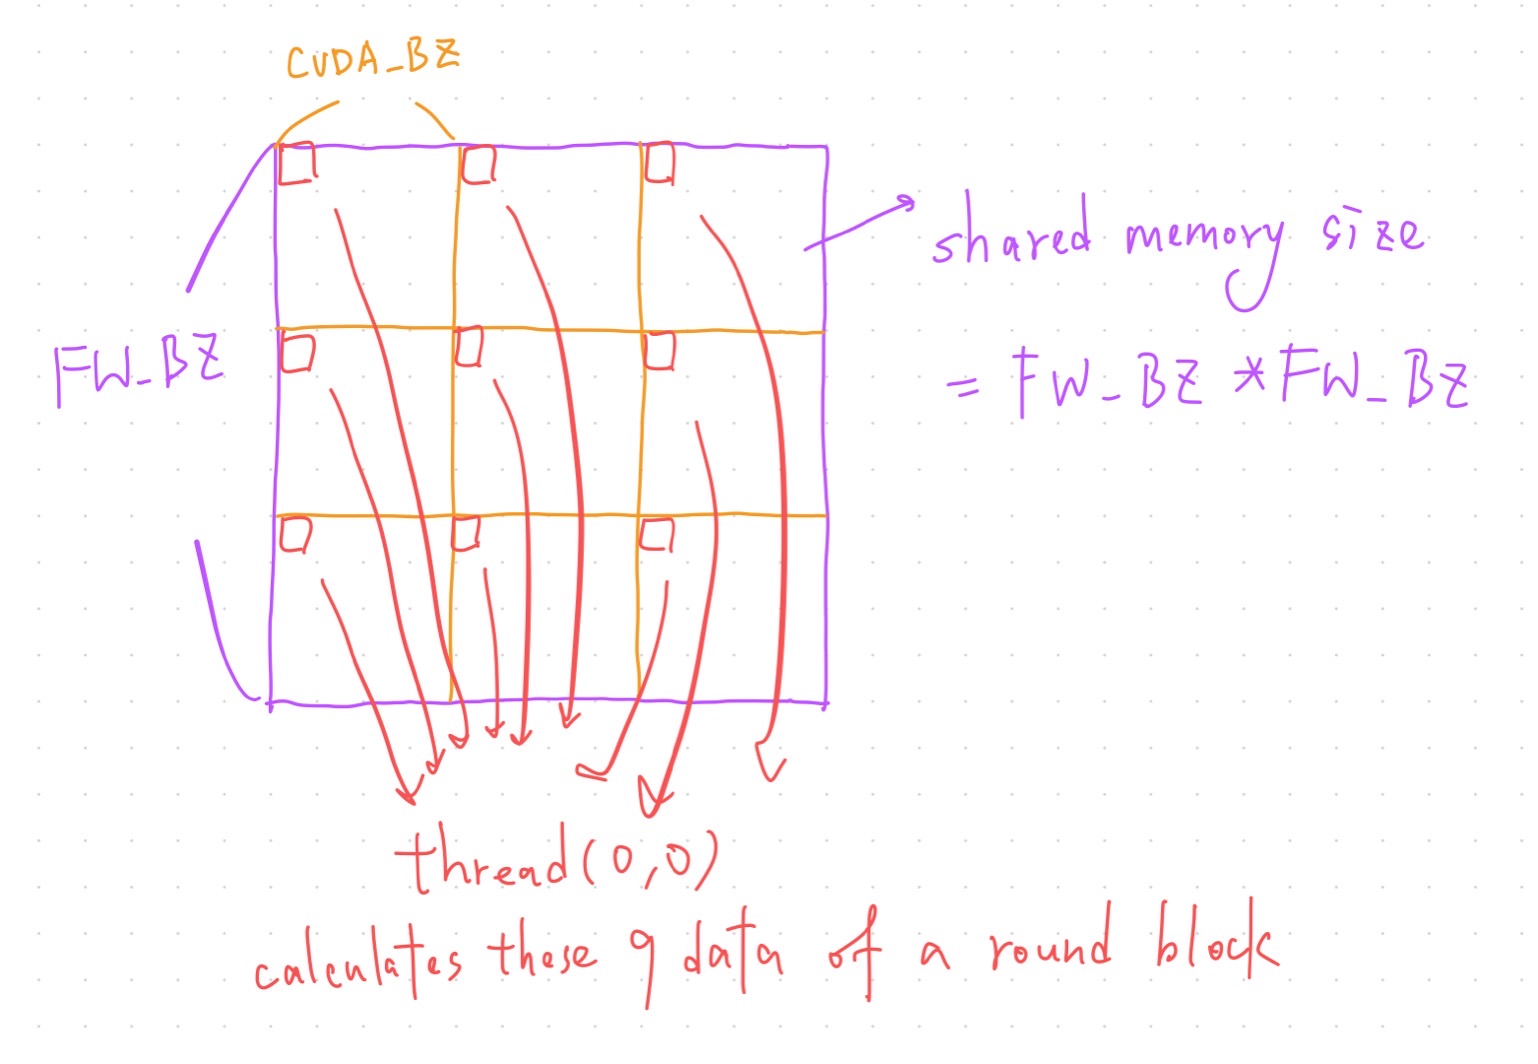 CUDA_BZ
shared memory size
= FW_BZ * FW_BZ
FW_BZ
thread(0,0)
calculates these 9 data of a round block